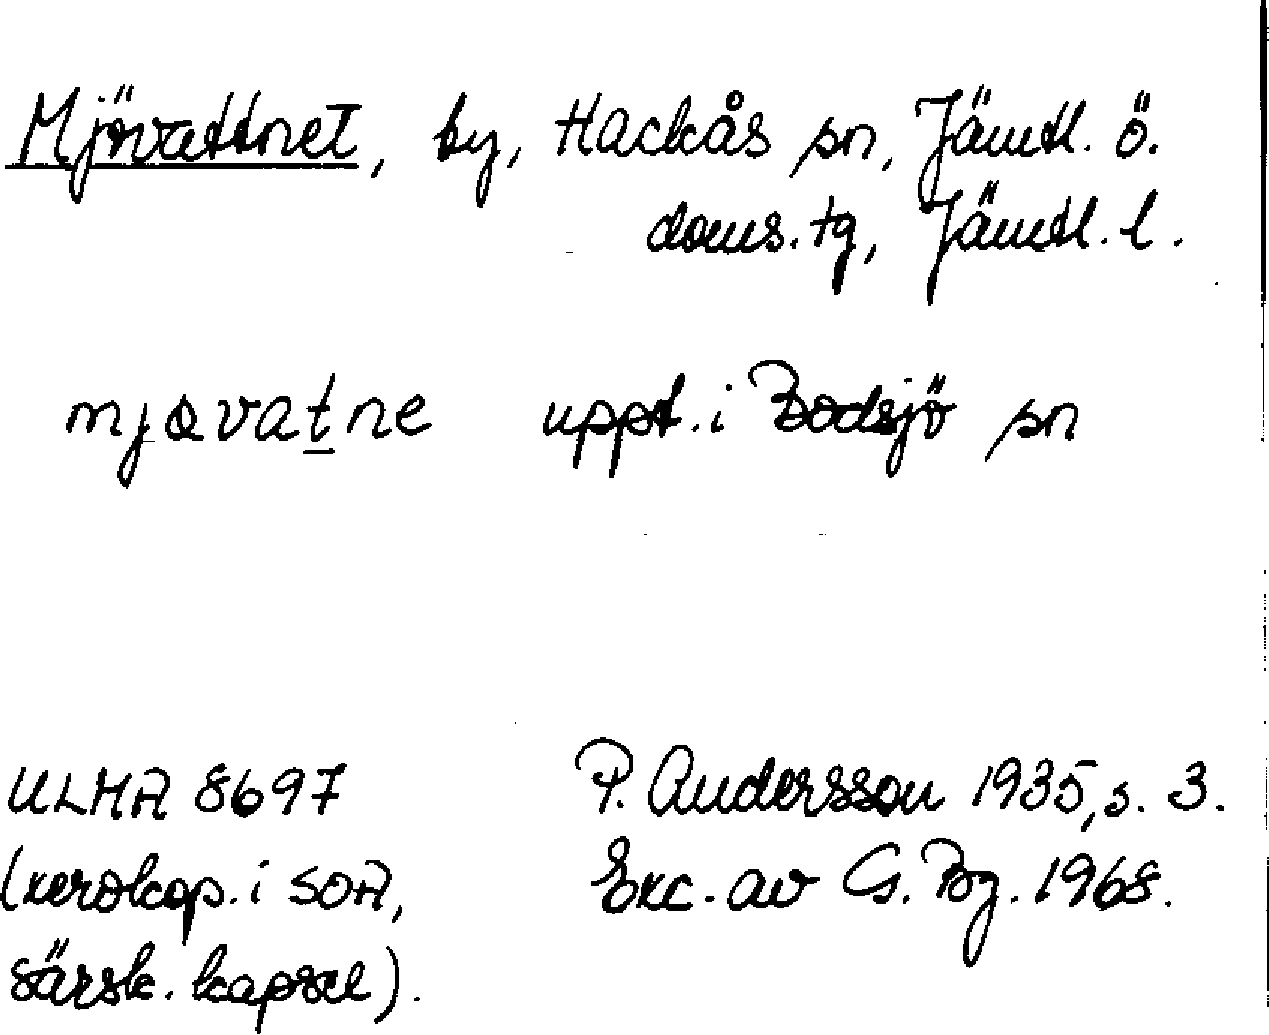 Mjövattnet, by, Hackås sn, Jämtl. ö.
doms. tg, Jämtl. l.
mjøvatne uppt. i Bodsjö sn
ULMA 8697 P. Andersson 1935, s. 3.
(xerokop. i SOA, Exc. av G. Bg. 1968.
särsk. kapsel).